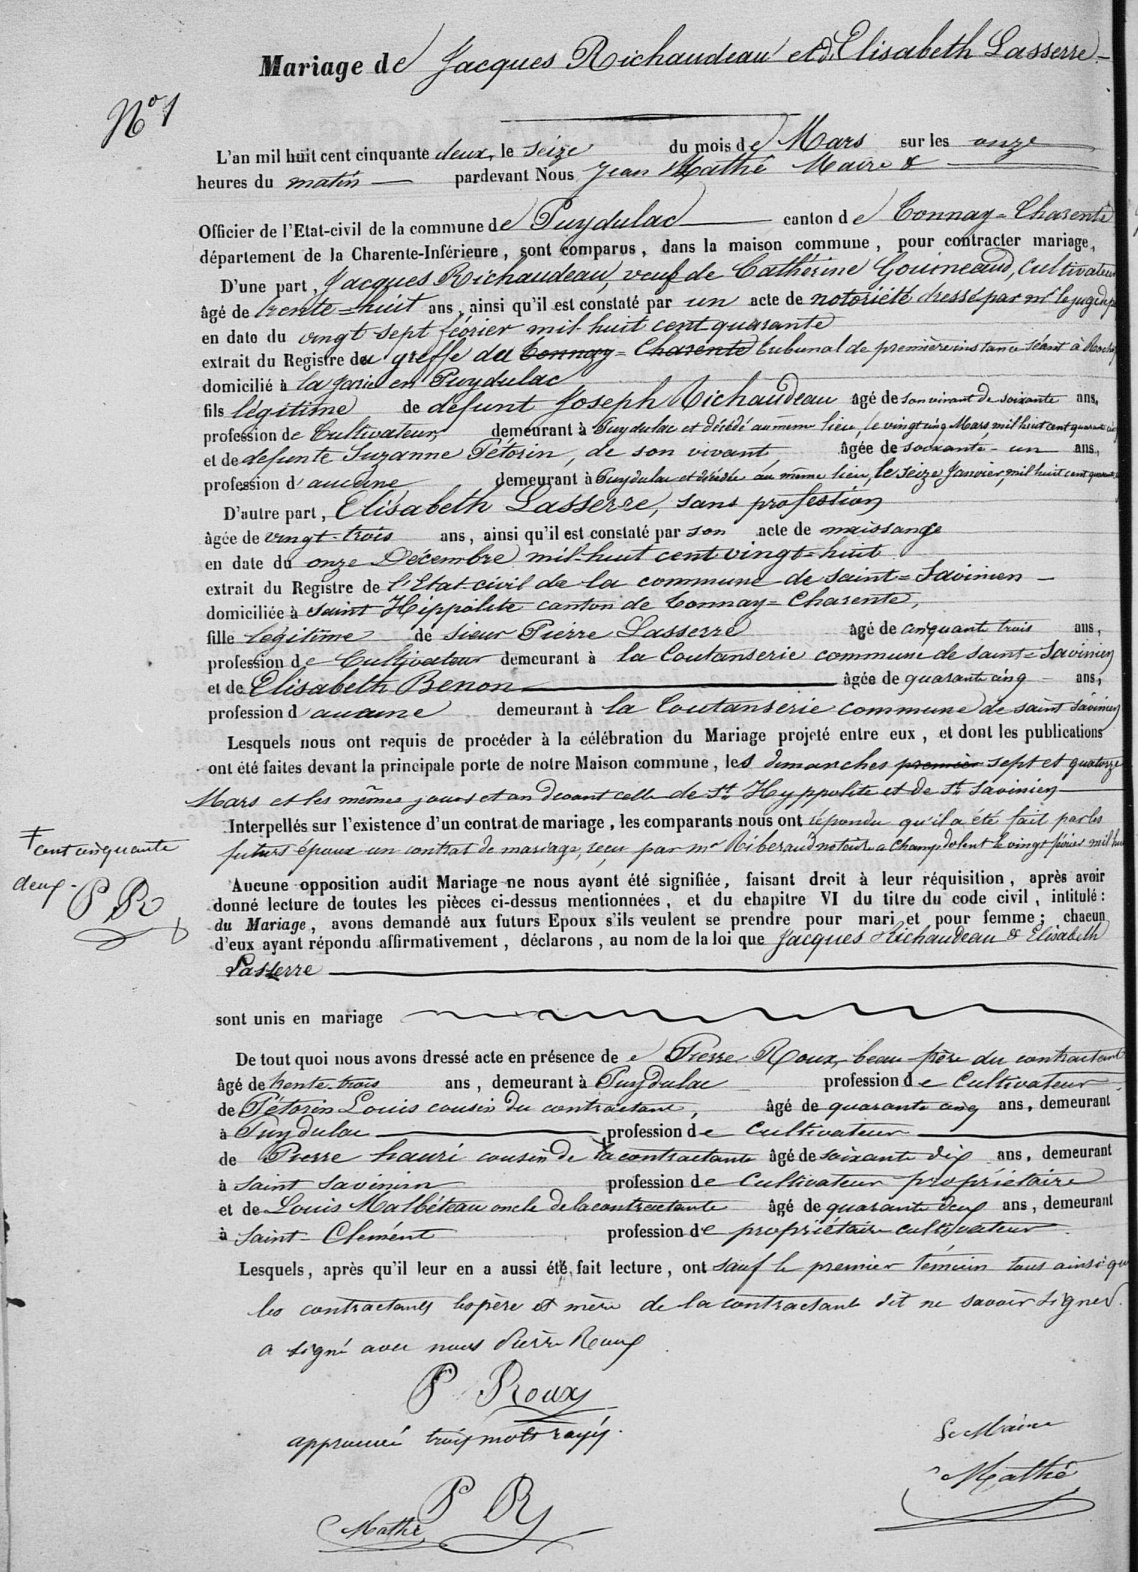 Mariage de Jacques Richaudeau et d'Elisabeth Lasserre
N° 1
L'an mil huit cent cinquante deux, le seize du mois de Mars sur les onze
heures du matin pardevant Nous Jean Mathé Maire &
Officier de l'Etat-civil de la commune de Puydulac canton de Tonnay-Charente
département de la Charente-Inférieure, sont comparus, dans la maison commune, pour contracter mariage,
D'une part, Jacques Richaudeau, veuf de Cathérine Gouineaud, Cultivateur
âgé de trente-huit ans, ainsi qu'il est constaté par un acte de notoriété dressé par mr le juge de
en date du vingt sept février mil huit cent quarante
extrait du Registre du greffe du Tonnay-Charente tribunal de première instance séant à
domicilié à la Jarie en Puydulac
fils légitime de défunt Joseph Richaudeau âgé de son vivant de soixante ans,
profession de Cultivateur, demeurant à Puydulac et décédé au même lieu, le vingt cinq Mars, mil huit cent quarante cinq
et de défunte Suzanne Pétorin, de son vivant, âgée de soixante-un ans,
profession d'aucune demeurant à Puydulac et décédée au même lieu, le seize Janvier, mil huit cent
D'autre part, Elisabeth Lasserre, sans profession
âgée de vingt-trois ans, ainsi qu'il est constaté par son acte de naissance
en date du onze Décembre mil-huit cent vingt-huit
extrait du Registre de l'Etat-civil de la commune de saint-Savinien
domiciliée à saint Hippolite canton de Tonnay-Charente,
fille légitime de sieur Pierre Lasserre âgé de cinquante trois ans,
profession de Cultivateur demeurant à la Coutanserie commune de saint-Savinien
et de Elisabeth Benon âgée de quarante cinq ans,
profession d'aucune demeurant à la Coutanserie commune de saint Savinien
Lesquels nous ont requis de procéder à la célébration du Mariage projeté entre eux, et dont les publications
ont été faites devant la principale porte de notre Maison commune, les dimanches premier sept et quatorze
Mars et les mêmes jours et an devant celle de St Hyppolite et de St Savinien
Interpellés sur l'existence d'un contrat de mariage, les comparants nous ont répondu qu'il a été fait par les
futurs époux un contrat de mariage, reçu par mr Riberaud notaire a Champdolent le vingt février mil huit
cent cinquante
deux.
P R
Aucune opposition audit Mariage ne nous ayant été signifiée, faisant droit à leur réquisition, après avoir
donné lecture de toutes les pièces ci-dessus mentionnées, et du chapitre VI du titre du code civil, intitulé :
du Mariage, avons demandé aux futurs Epoux s'ils veulent se prendre pour mari et pour femme ; chacun
d'eux ayant répondu affirmativement, déclarons, au nom de la loi que Jacques Richaudeau & Elisabeth
Lasserre
sont unis en mariage
De tout quoi nous avons dressé acte en présence de Pierre Roux, beau-frère du contractant
âgé de trente-trois ans, demeurant à Puydulac profession de Cultivateur
de Pétorin Louis cousin du contractant, âgé de quarante cinq ans, demeurant
à Puydulac profession de Cultivateur
de Pierre hauri cousin de la contractante âgé de soixante dix ans, demeurant
à saint savinien profession de Cultivateur propriétaire
et de Louis Malbéteau oncle de la contractante âgé de quarante deux ans, demeurant
à Saint-Clément profession de propriétaire cultivateur
Lesquels, après qu'il leur en a aussi été fait lecture, ont sauf le premier témoin tous ainsi que
les contractants les père et mère de la contractante dit ne savoir signer
a signé avec nous Pierre Roux
P Roux
approuvé trois mots rayés.
Le Maire
Mathé
P R
Mathé